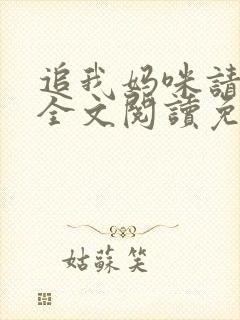 追我妈咪請
全文閱讀免
姑蘇笑